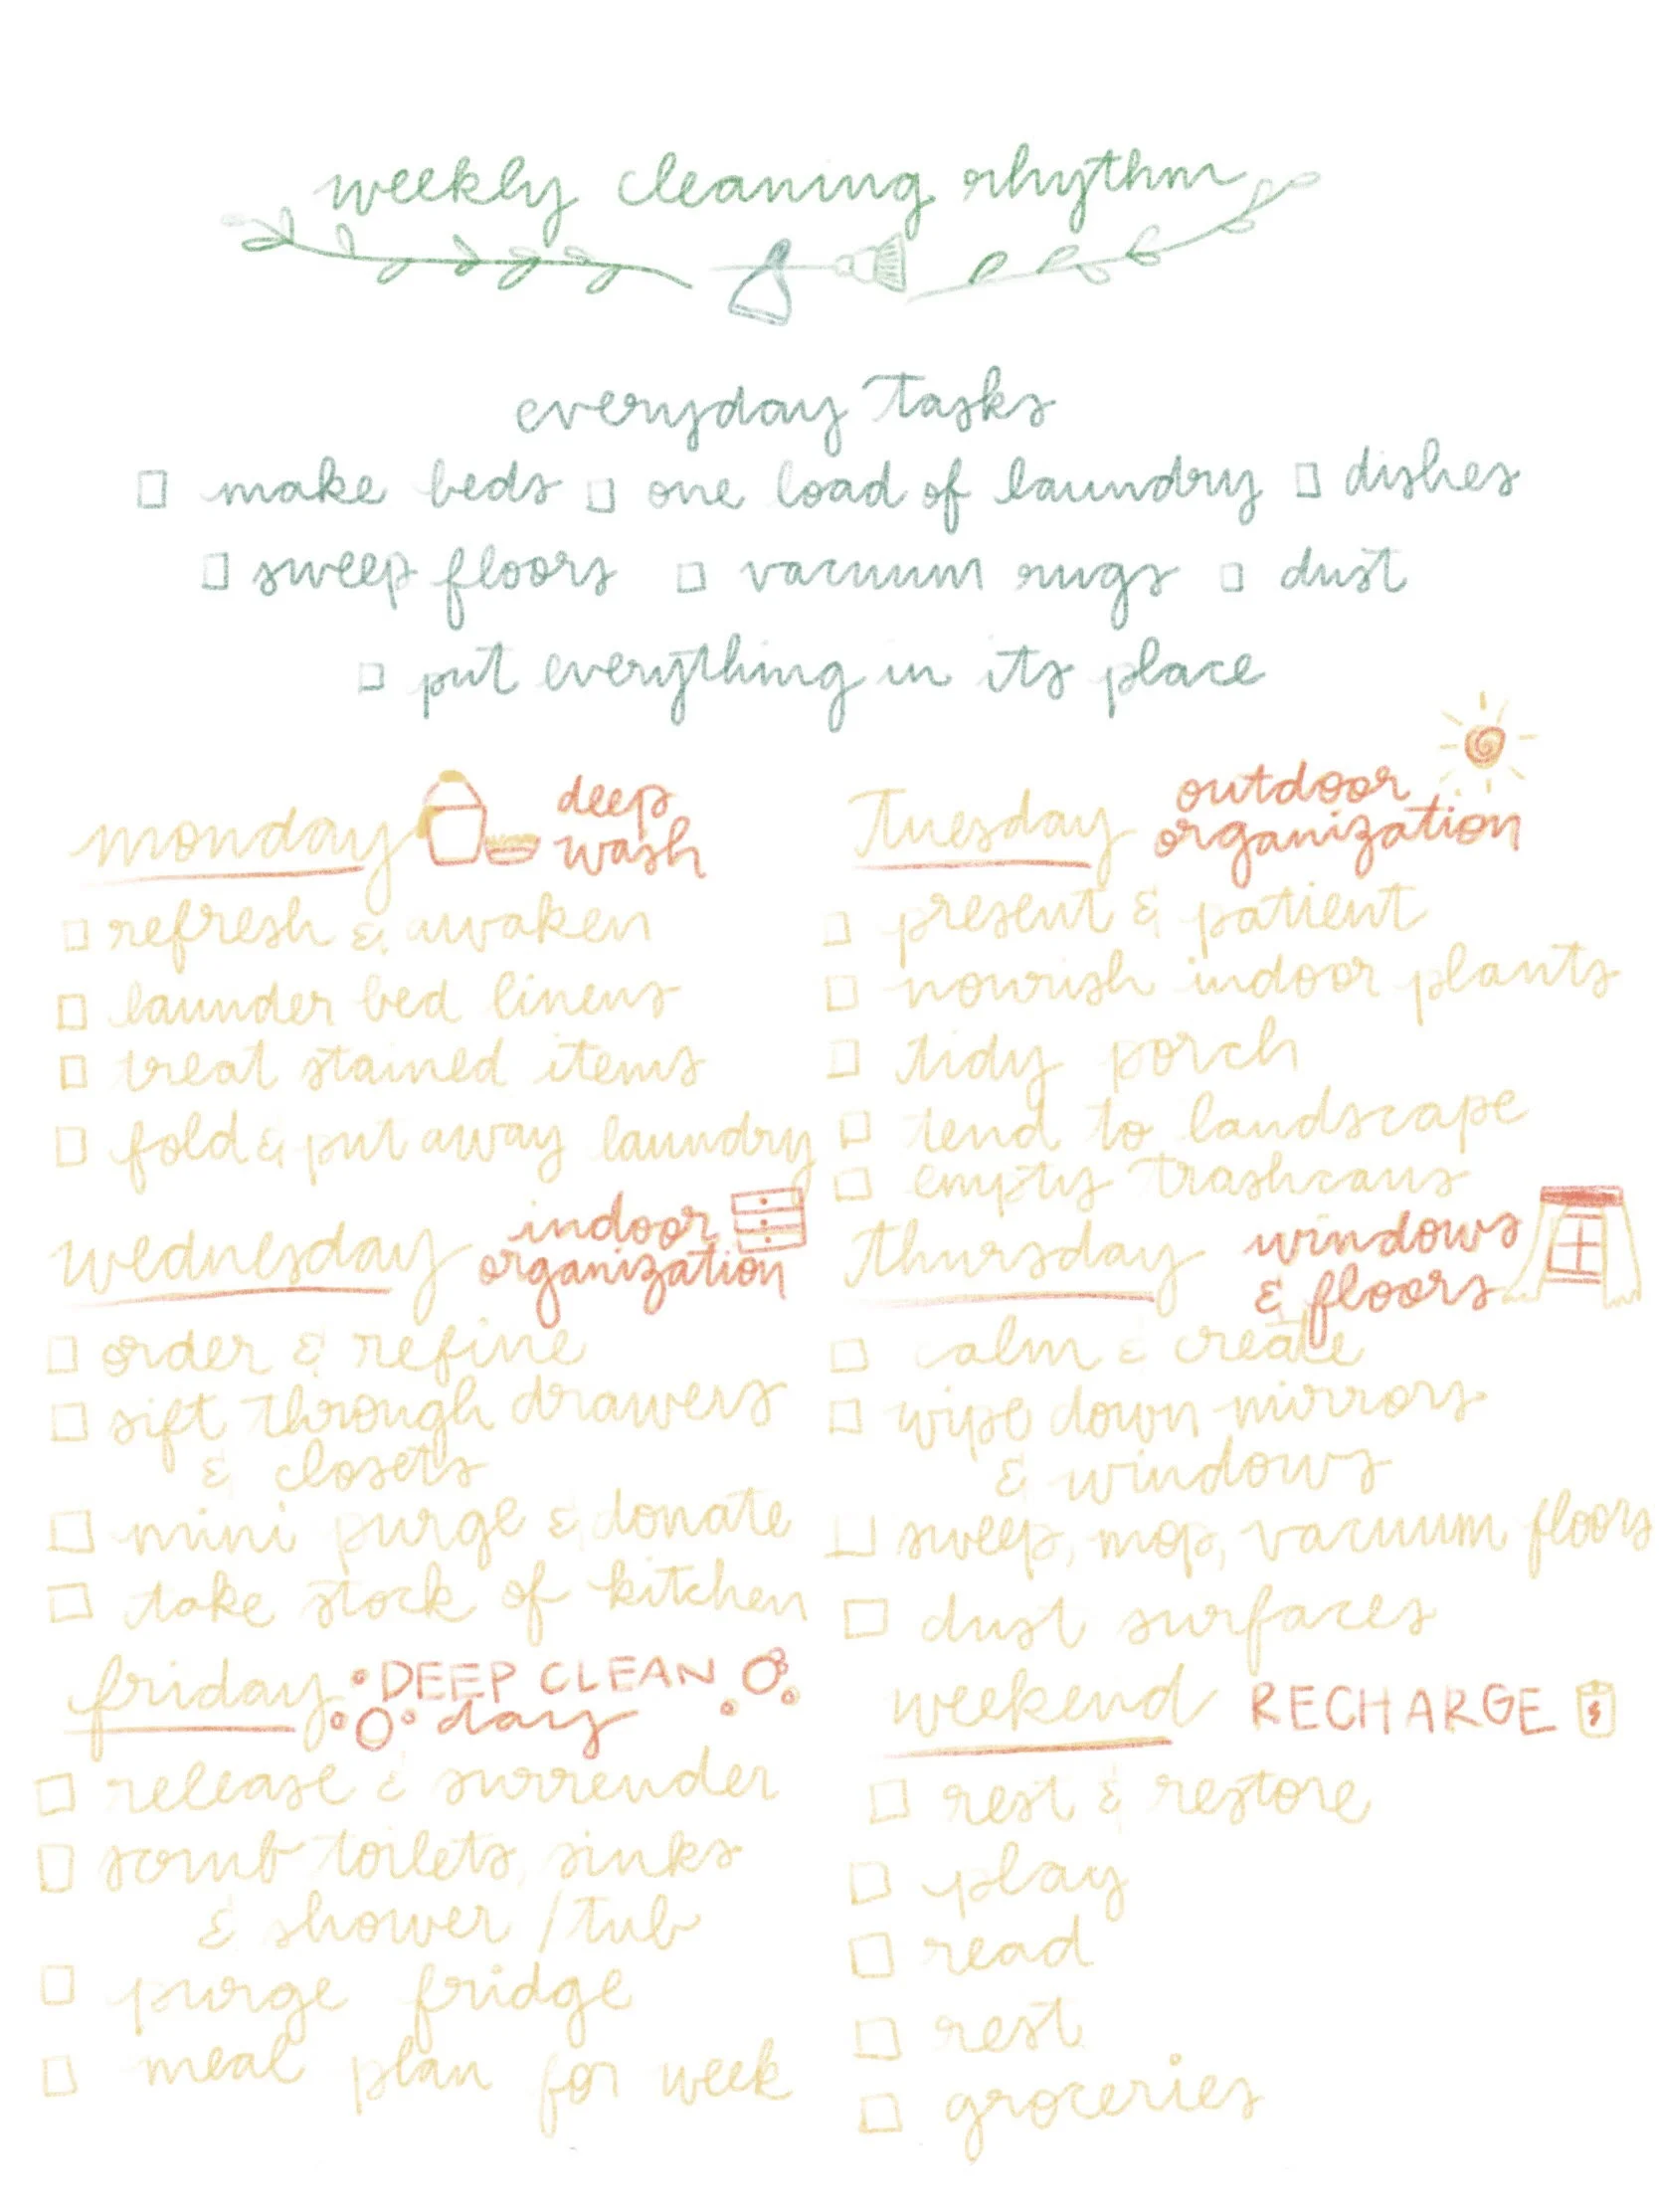 weekly cleaning rhythm
everyday tasks
make beds one load of laundry dishes
sweep floors vacuum rugs dust
put everything in its place
monday deep
wash
refresh & awaken
launder bed linens
treat stained items
fold & put away laundry
Tuesday outdoor
organization
present & patient
nourish indoor plants
tidy porch
tend to landscape
empty trashcans
wednesday indoor
organization
order & refine
sift through drawers
& closets
mini purge & donate
take stock of kitchen
thursday windows
& floors
calm & create
wipe down mirrors
& windows
sweep, mop, vacuum floors
dust surfaces
friday DEEP CLEAN
day
release & surrender
scrub toilets, sinks
& shower / tub
purge fridge
meal plan for week
weekend RECHARGE
rest & restore
play
read
rest
groceries